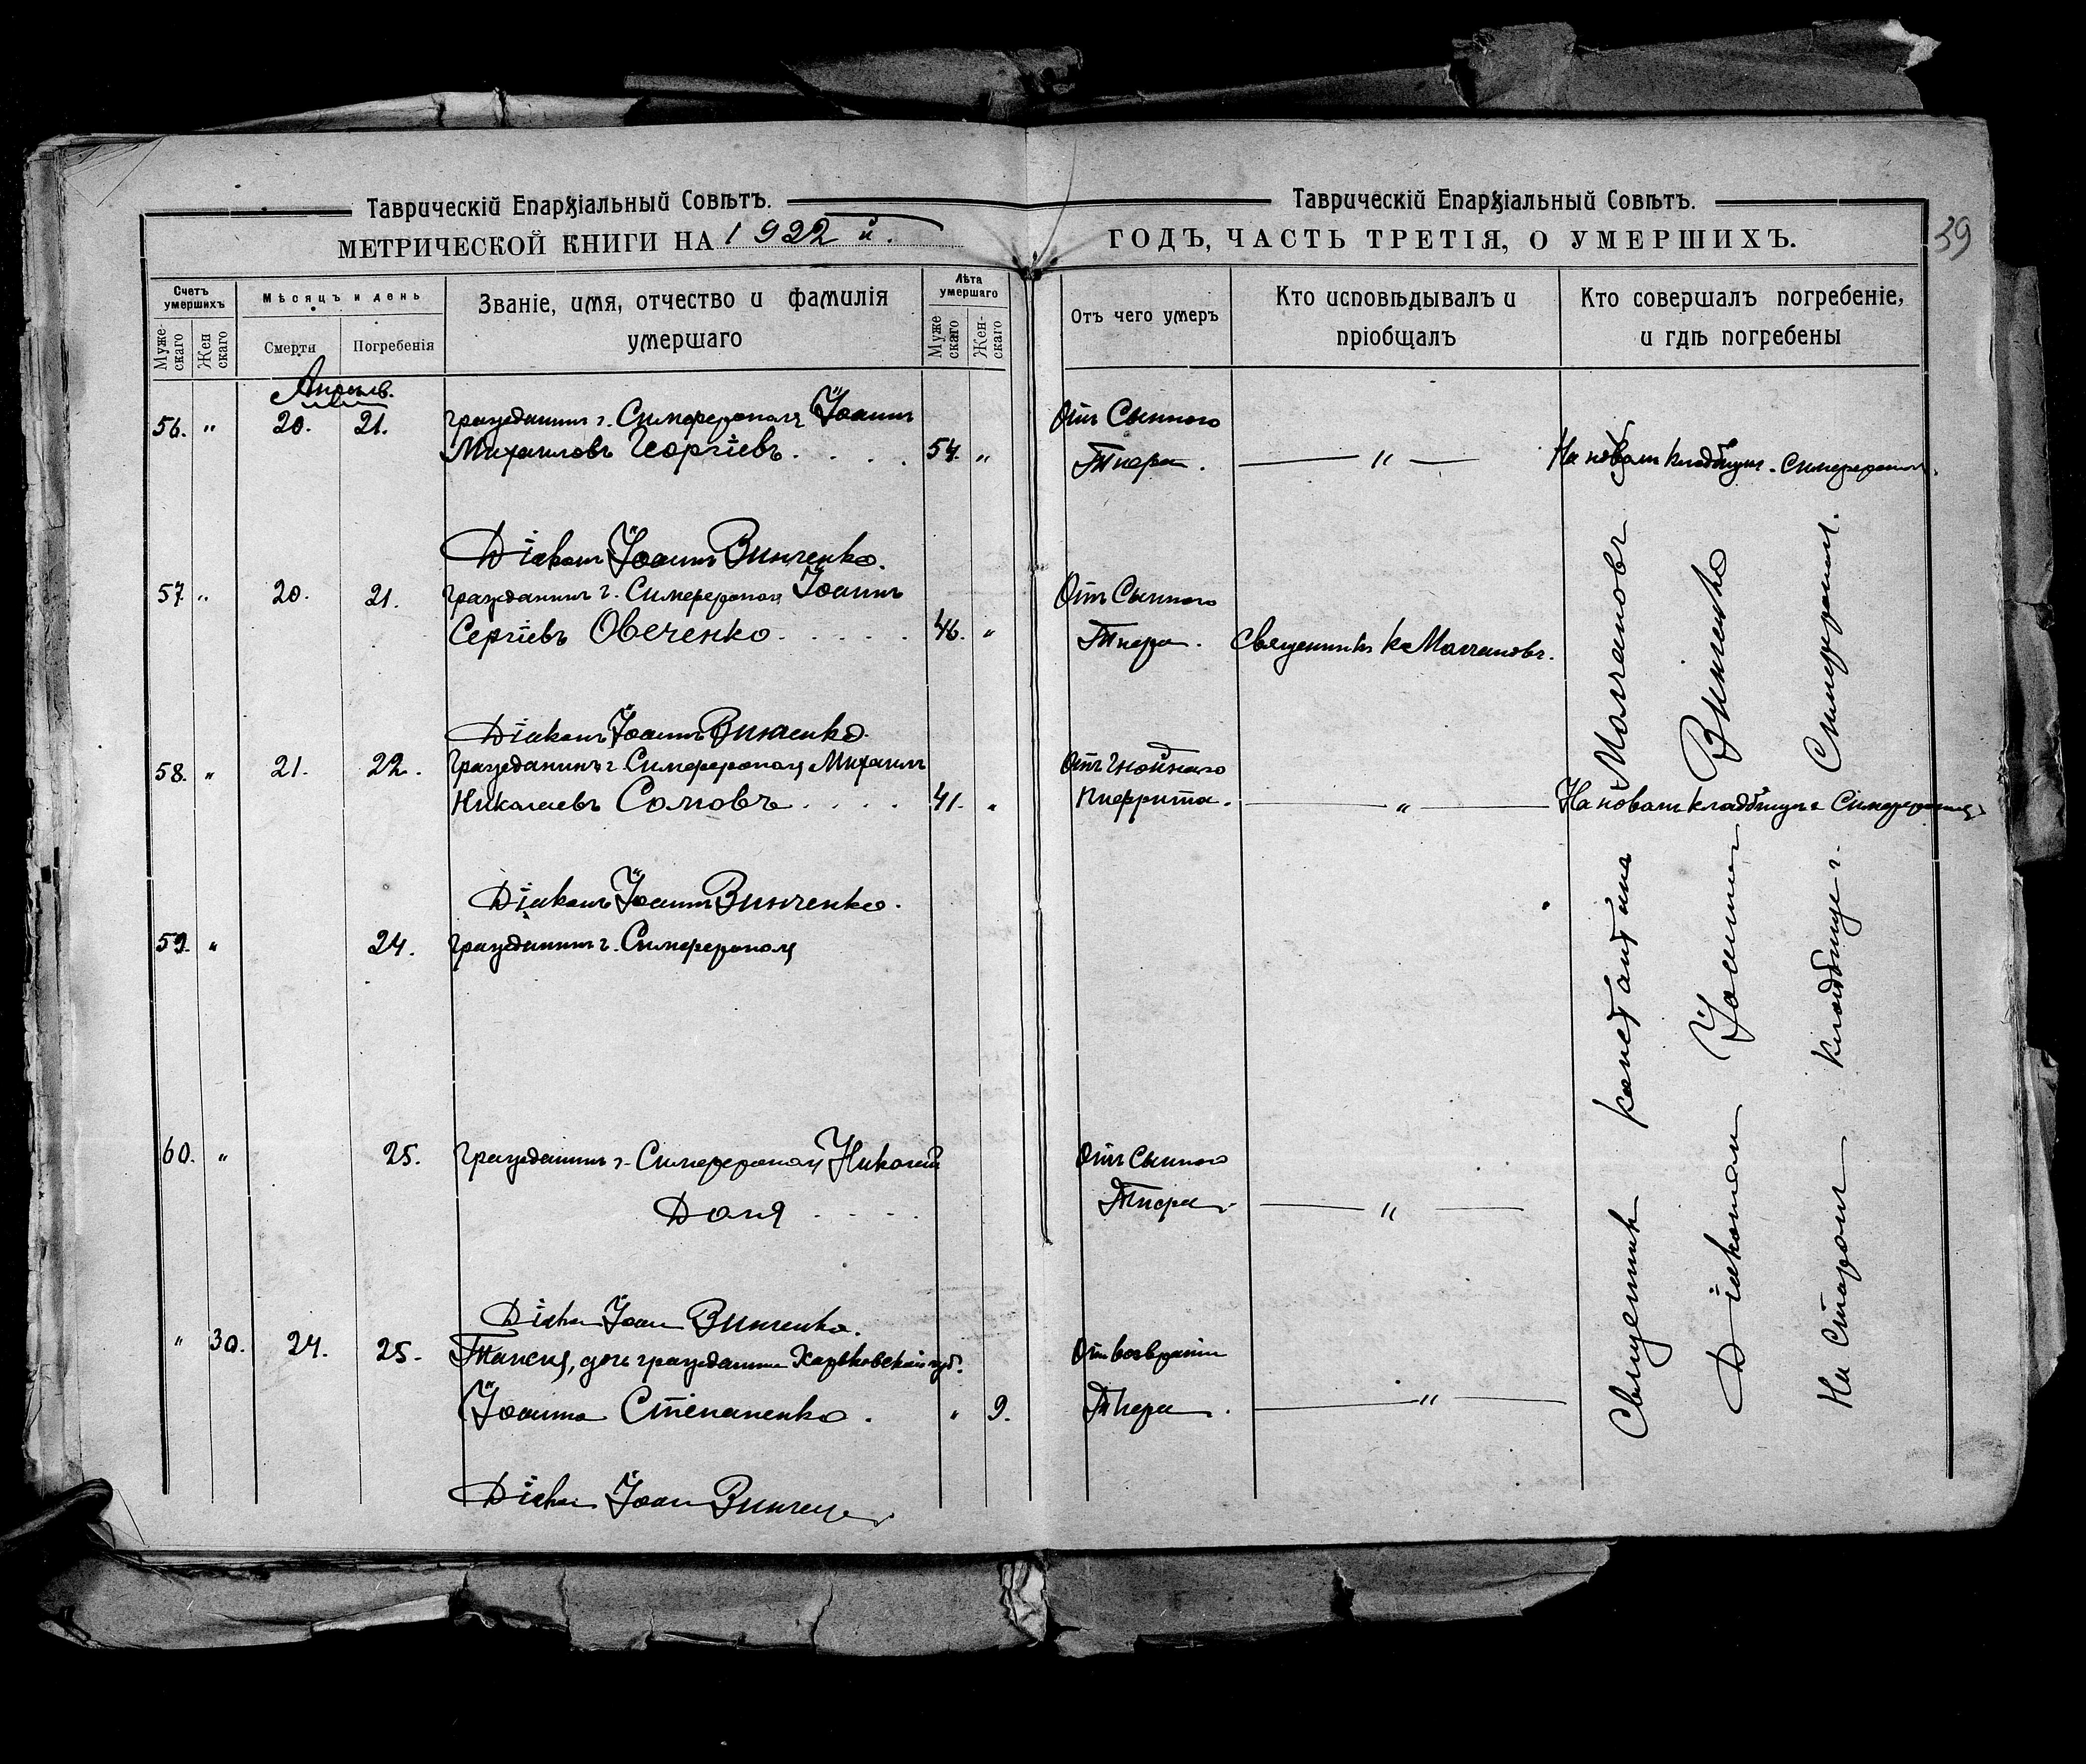 Таврическій Епархіальный Совѣтъ.
МЕТРИЧЕСКОЙ КНИГИ НА 1922 й.
Счетъ умершихъ
Муже-скаго
Жен скаго
Мѣсяцъ и день
Смерти
Погребенія
Званіе, имя, отчество и фамилія
умершаго
Лѣта умершаго
Муже скаго
Жен-скаго
Апрель.
56. " 20. 21. гражданинъ г. Симферополя Іоаннъ
Михаиловъ Георгіевъ. . . . . 54. "
Діаконъ Іоаннъ Винченко.
57 " 20. 21. гражданинъ г. Симферополя Іоаннъ
Сергіевъ Овеченко. . . . . . 46. "
Діаконъ Іоаннъ Винченко.
58. " 21. 22. гражданинъ г. Симферополя Михаилъ
Николаевъ Сомовъ . . . . 41. "
Діаконъ Іоаннъ Винченко.
59. " 24. гражданинъ г. Симферополя
60. " 25. гражданинъ г. Симферополя Николай
Доля . . . .
Діакон Іоан Винченко.
" 30. 24. 25. Таисія, дочь гражданина Харьковской губ.
Іоанна Степаненко. " 9.
Діакон Іоан Винченко
Таврическій Епархіальный Совѣтъ.
ГОДЪ, ЧАСТЬ ТРЕТІЯ, О УМЕРШИХЪ.
39
Отъ чего умеръ
Кто исповѣдывалъ и
пріобщалъ
Кто совершалъ погребеніе,
и гдѣ погребены
Отъ Сыпного
Тифа. — " — На новом кладбищѣ г. Симферополя.
Отъ Сыпного
Тифа. Священникъ К Молчановъ.
Отъ Гнойнаго
— " — На новом кладбищѣ г. Симферополя
Отъ Сыпного
Тифа. — " —
От возвратн
Тифа. — " —
Священник Константина Молчановъ с
Діаконом Іоанном Винченко
На Старом кладбище г. Симферополя.